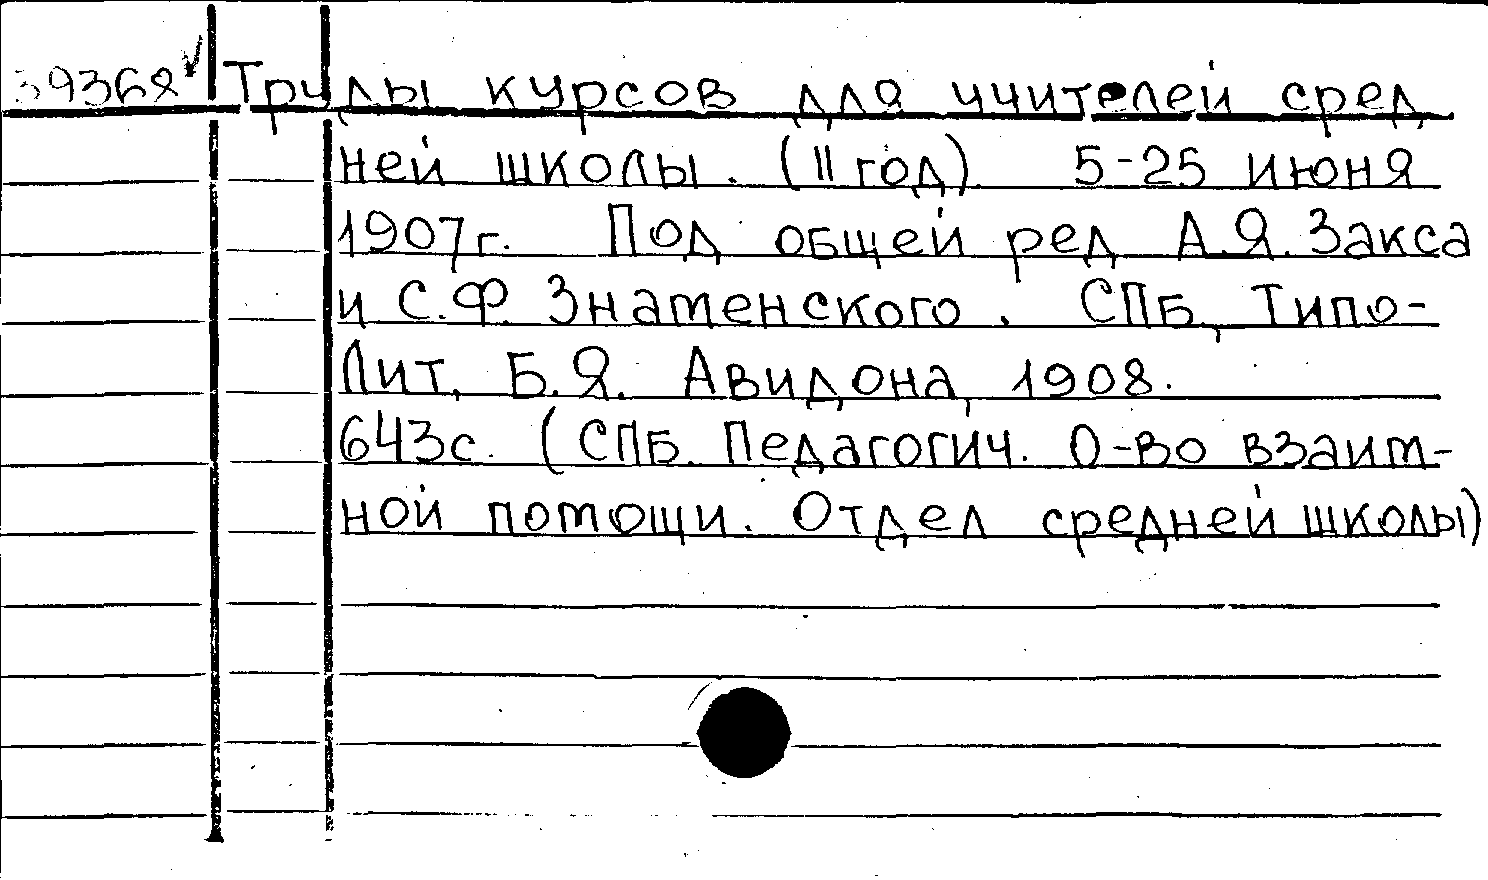 39368 Труды курсов для учителей сред
ней школы. (II год). 5-25 июня
1907г. Под общей ред А.Я. Закса
и С.Ф. Знаменского. СПБ, Типо-
Лит, Б.Я. Авидона, 1908.
643с. (СПБ. Педагогич. О-во взаим-
ной помощи. Отдел средней школы)